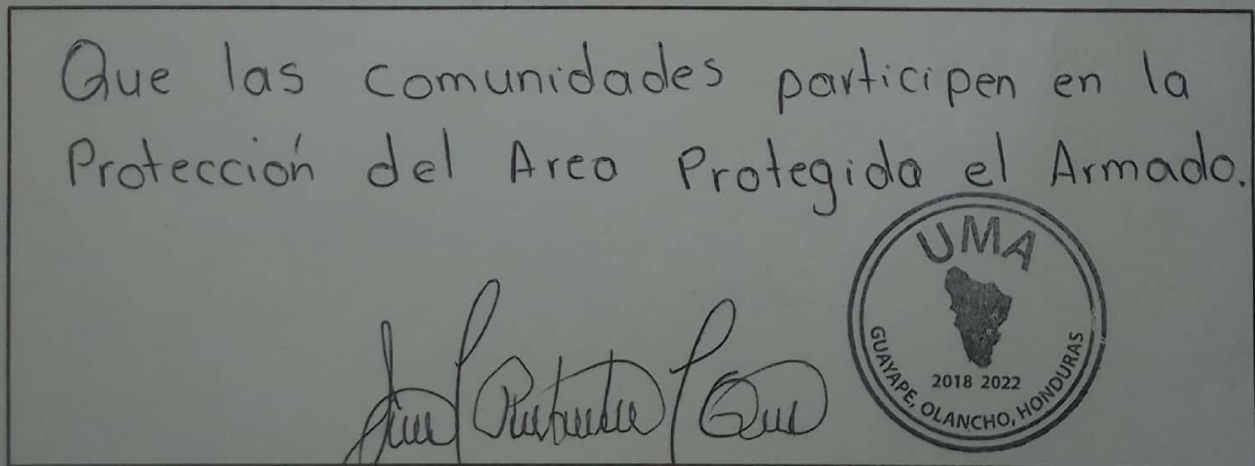 Que las comunidades participen en la
Protección del Area Protegida el Armado.
UMA
2018 2022
GUAYAPE, OLANCHO, HONDURAS